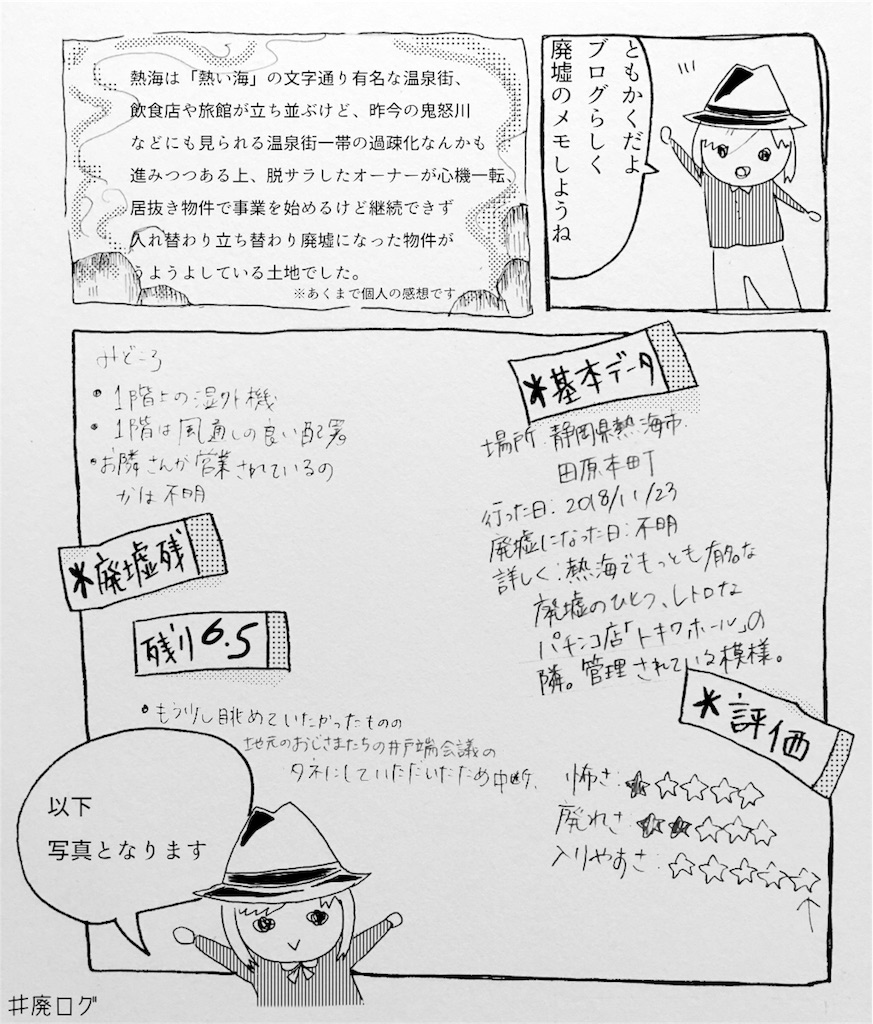 ともかくだよ
ブログらしく
廃墟のメモしようね
熱海は「熱い海」の文字通り有名な温泉街、
飲食店や旅館が立ち並ぶけど、昨今の鬼怒川
などにも見られる温泉街一帯の過疎化なんかも
進みつつある上、脱サラしたオーナーが心機一転、
居抜き物件で事業を始めるけど継続できず
入れ替わり立ち替わり廃墟になった物件が
うようよしている土地でした。
※あくまで個人の感想です
*基本データ
場所:静岡県熱海市
田原本町
行った日:2018/11/23
廃墟になった日:不明
詳しく:熱海でもっとも有名な
廃墟のひとつ、レトロな
パチンコ店「トキワホール」の
隣。管理されている模様。
*評価
怖さ:★☆☆☆☆
廃れさ:★★☆☆☆
入りやすさ:☆☆☆☆☆
↑
みどころ
•1階上の湿外機
•1階は風通しの良い配置。
•お隣さんが営業されているの
かは不明
*廃墟残
残り6.5
•もう少し眺めていたかったものの
地元のおじさまたちの井戸端会議の
タネにしていただいたため中断、
以下
写真となります
#廃ログ